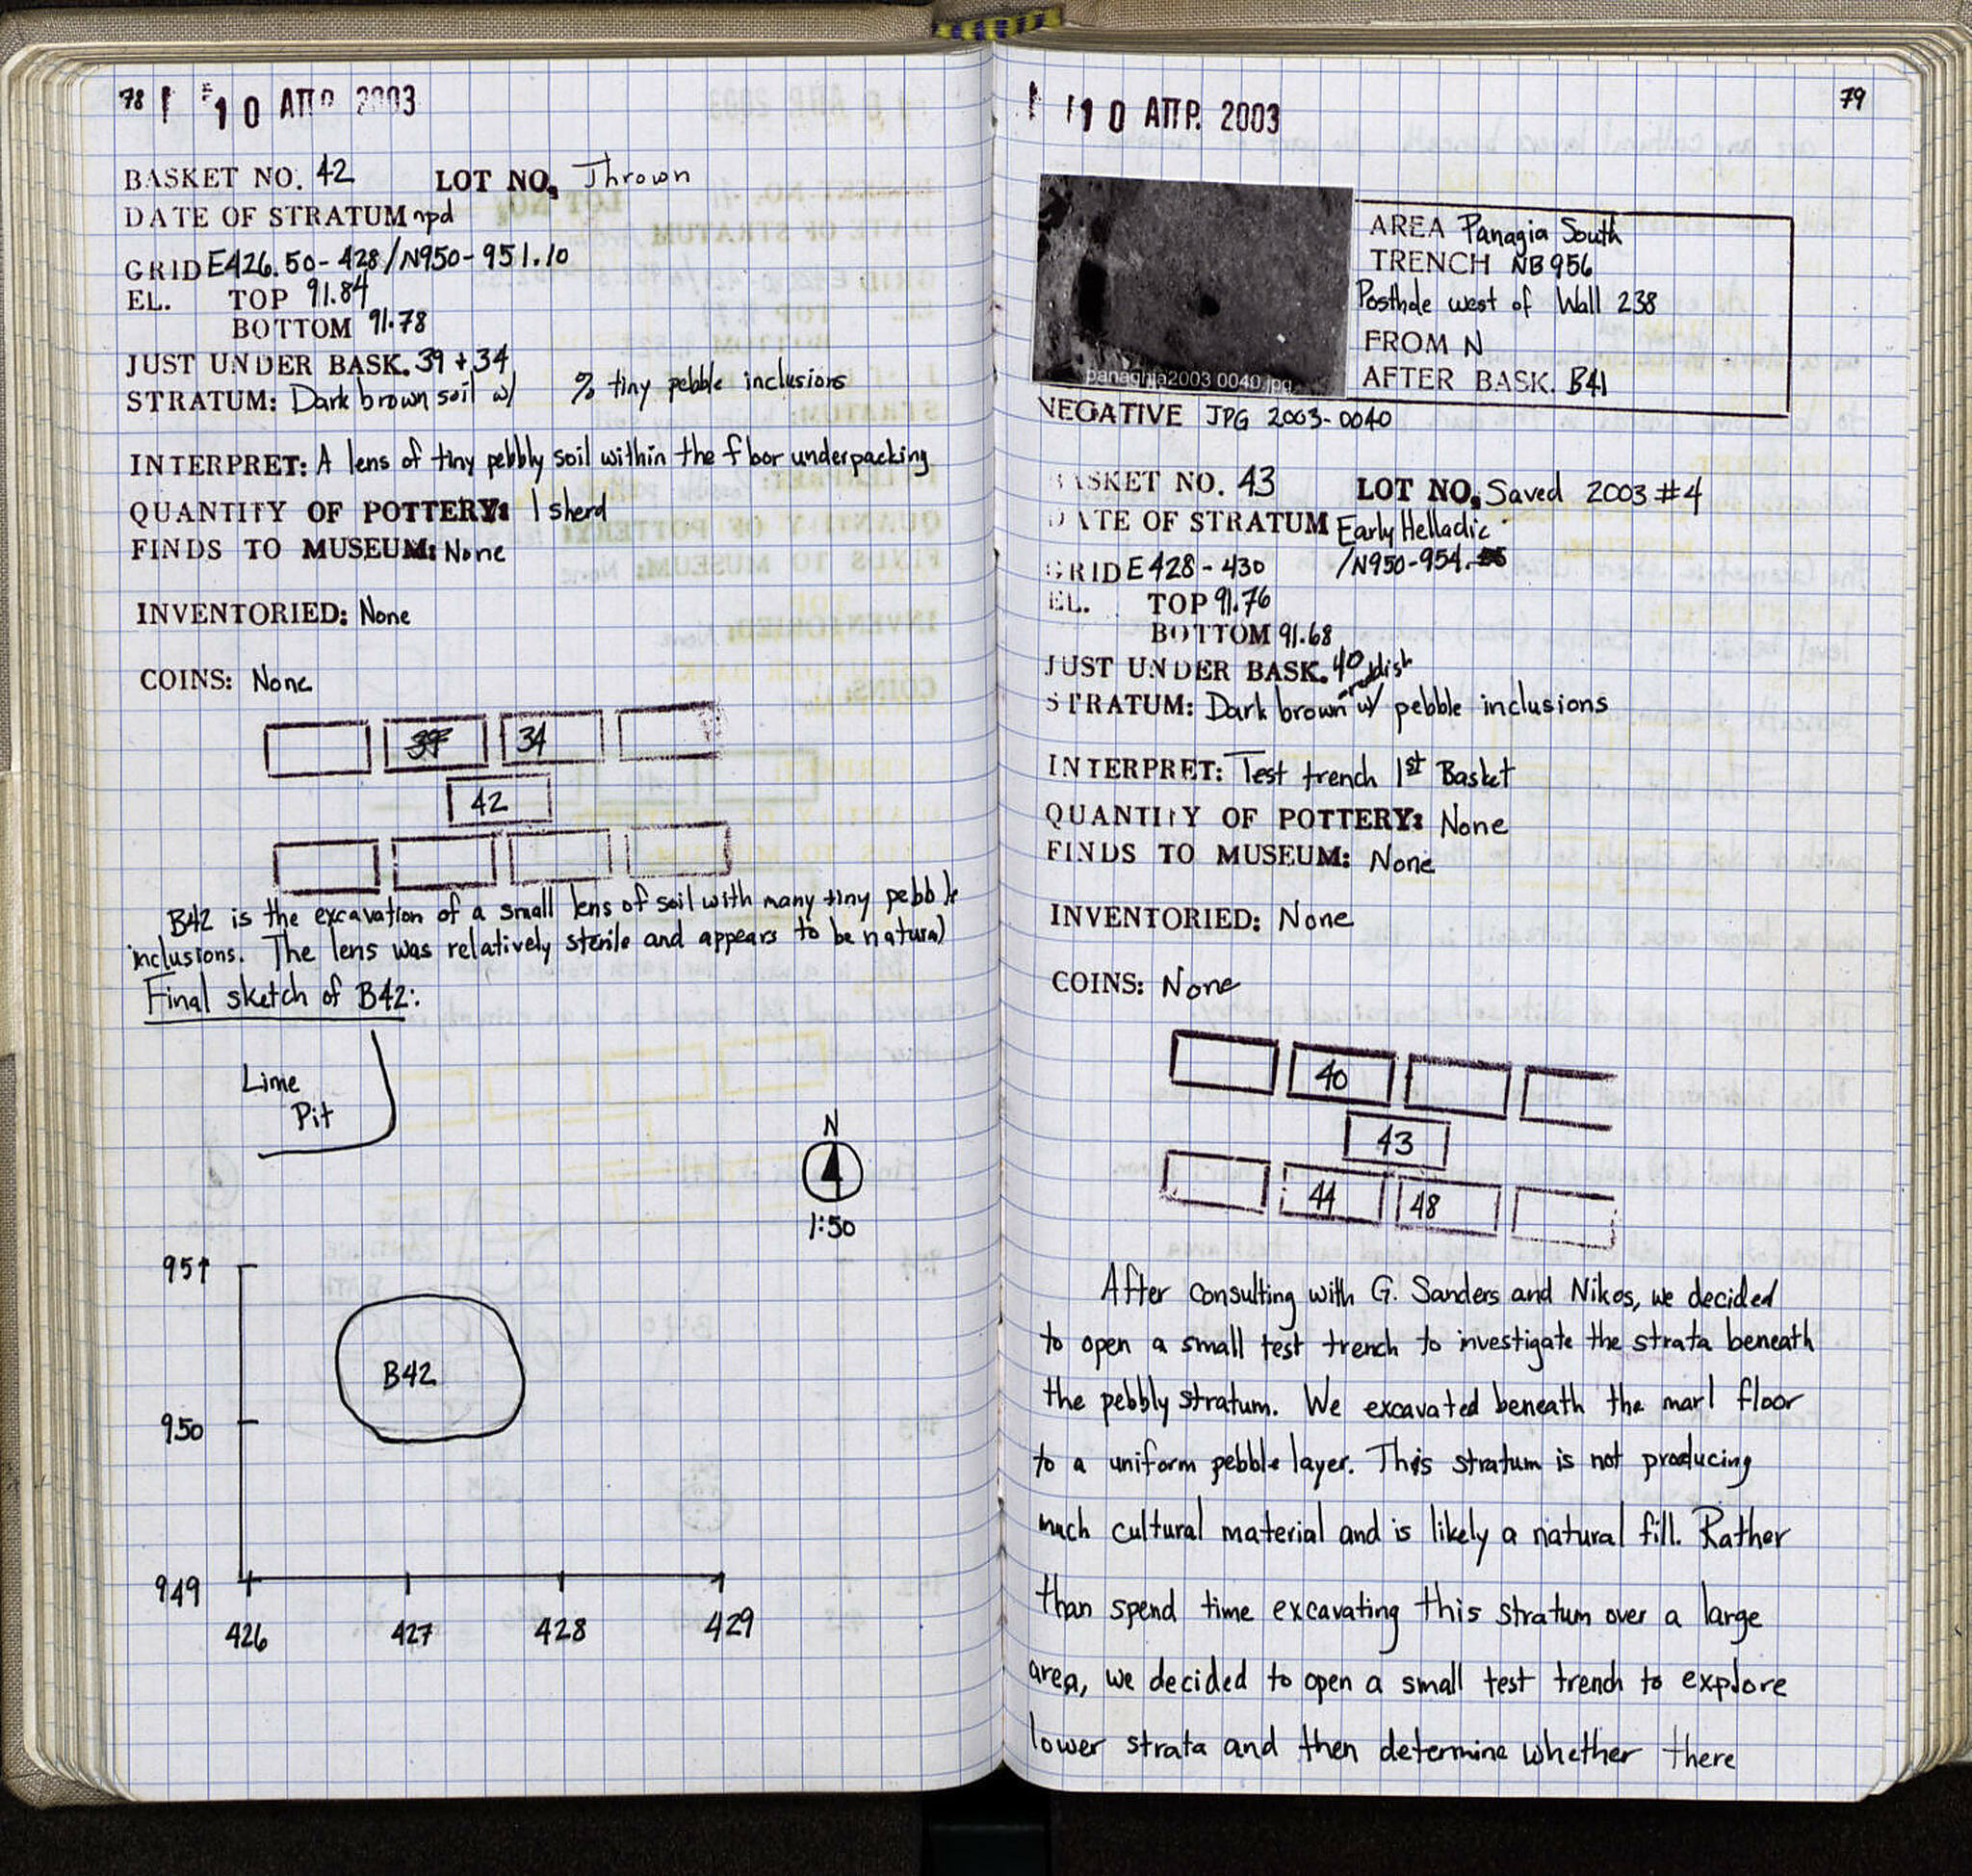 78 10 ΑΠΡ 2003
BASKET NO. 42 LOT NO. Thrown
DATE OF STRATUM npd
GRID E426.50-428/N950-951.10
EL. TOP 91.84
BOTTOM 91.78
JUST UNDER BASK. 39+34
STRATUM: Dark brown soil w/ % tiny pebble inclusions
INTERPRET: A lens of tiny pebbly soil within the floor underpacking
QUANTITY OF POTTERY: 1 sherd
FINDS TO MUSEUM: None
INVENTORIED: None
COINS: None
39 34
42
B42 is the excavation of a small lens of soil with many tiny pebble
inclusions. The lens was relatively sterile and appears to be natural
Final sketch of B42:
Lime
Pit
N
1:50
951
B42
950
949
426 427 428 429
10 ΑΠΡ. 2003 79
panaghia2003 0040.jpg
AREA Panagia South
TRENCH NB956
Posthole west of Wall 238
FROM N
AFTER BASK. B41
NEGATIVE JPG 2003-0040
BASKET NO. 43 LOT NO. Saved 2003 #4
DATE OF STRATUM Early Helladic
GRID E428-430 /N950-954.
EL. TOP 91.76
BOTTOM 91.68
JUST UNDER BASK. 40
STRATUM: Dark brown reddish w/ pebble inclusions
INTERPRET: Test trench 1st Basket
QUANTITY OF POTTERY: None
FINDS TO MUSEUM: None
INVENTORIED: None
COINS: None
40
43
44 48
After consulting with G. Sanders and Nikos, we decided
to open a small test trench to investigate the strata beneath
the pebbly stratum. We excavated beneath the marl floor
to a uniform pebble layer. This stratum is not producing
much cultural material and is likely a natural fill. Rather
than spend time excavating this stratum over a large
area, we decided to open a small test trench to explore
lower strata and then determine whether there